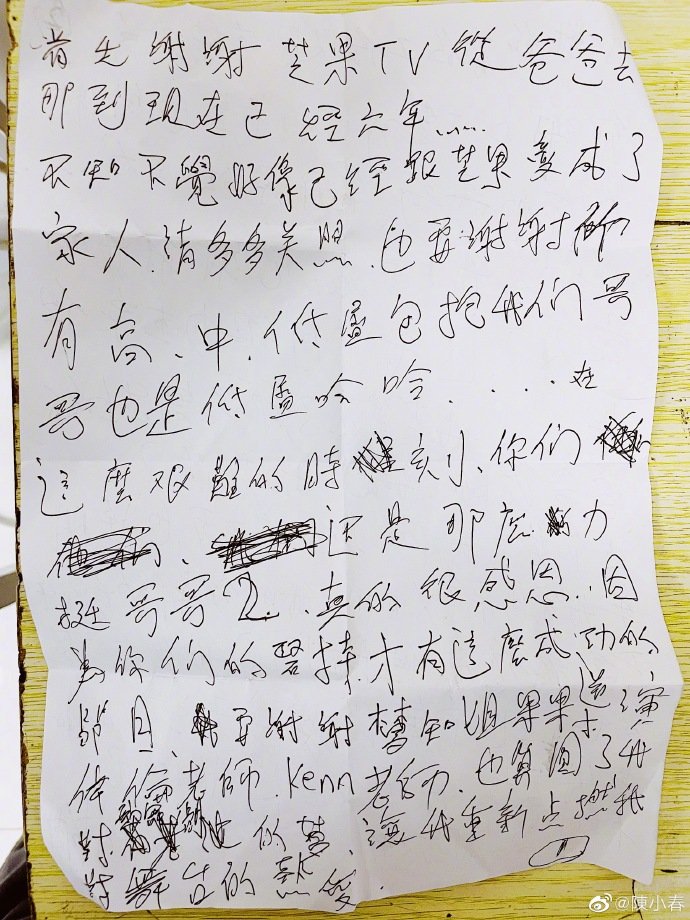 首先謝謝芒果TV從爸爸去
那到現在已經六年......
不知不覺好像已經跟芒果變成了
家人.請多多关照.也要謝謝所
有高、中、低層包括我们哥
哥也是低層哈哈.....在
這麼艰難的時刻、你们
、还是那麼力
挺哥哥2.真的很感恩.因
為你们的堅持.才有這麼成功的
節目、要謝謝 知姐果果導演
伟倫老師.Kenn老師.也算圆了我
對 的梦.讓我重新点燃我
對舞台的熱愛.
①
@陳小春